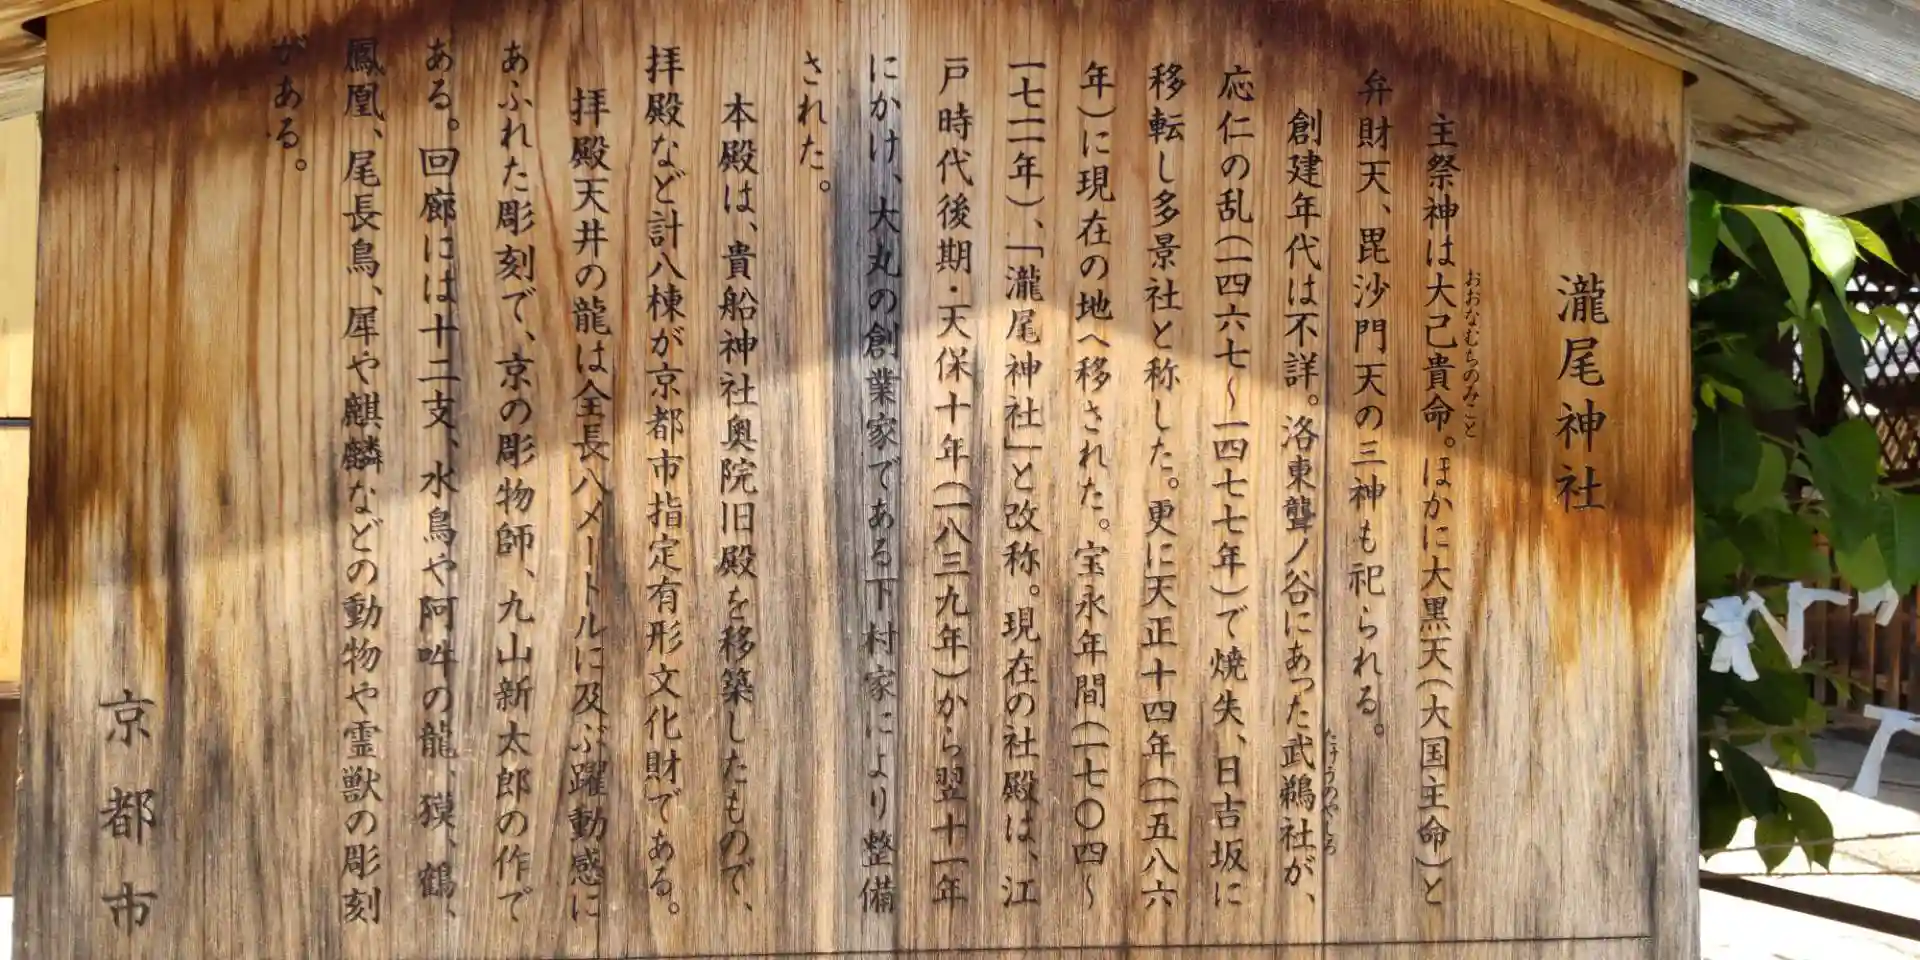 瀧尾神社
主祭神は大己貴命。ほかに大黒天（大国主命）と
おおなむちのみこと
弁財天、毘沙門天の三神も祀られる。
創建年代は不詳。洛東聾ノ谷にあった武鵜社が、
たけうのやしろ
応仁の乱（一四六七～一四七七年）で焼失、日吉坂に
移転し多景社と称した。更に天正十四年（一五八六
年）に現在の地へ移された。宝永年間（一七〇四～
一七一一年）、「瀧尾神社」と改称。現在の社殿は、江
戸時代後期・天保十年（一八三九年）から翌十一年
にかけ、大丸の創業家である下村家により整備
された。
本殿は、貴船神社奥院旧殿を移築したもので、
拝殿など計八棟が京都市指定有形文化財である。
拝殿天井の龍は全長八メートルに及ぶ躍動感に
あふれた彫刻で、京の彫物師、九山新太郎の作で
ある。回廊には十二支、水鳥や阿吽の龍、獏、鶴、
鳳凰、尾長鳥、犀や麒麟などの動物や霊獣の彫刻
がある。
京都市